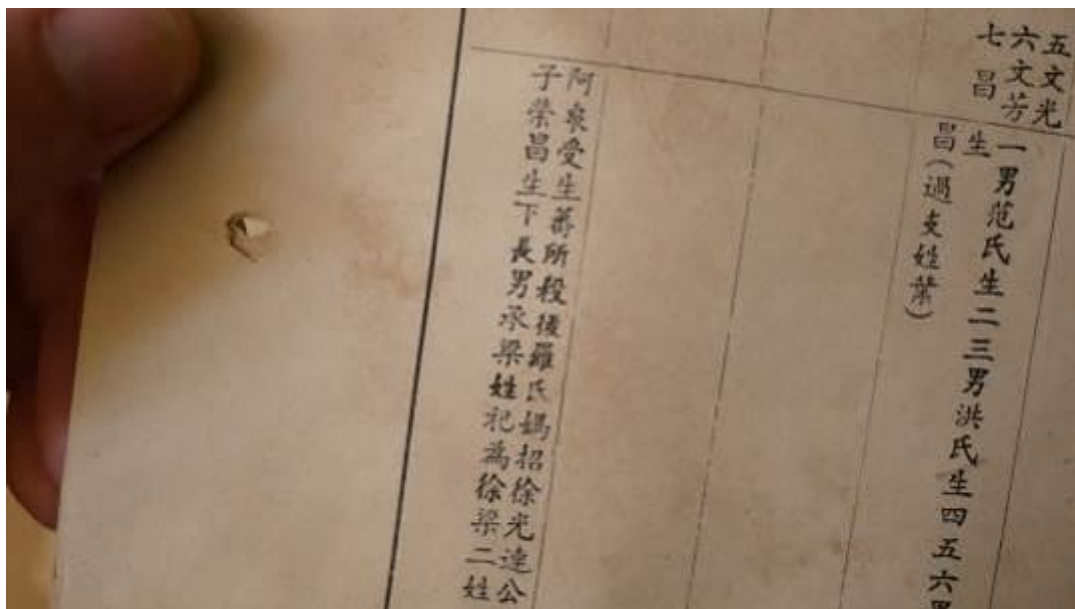 五文光
六文芳
七 昌
一男范氏生二三男洪氏生四五六男
生
昌(過支姓葉)
阿泉受生蕃所殺後羅氏媽招徐光達公
子榮昌生下長男承梁姓祀為徐梁二姓